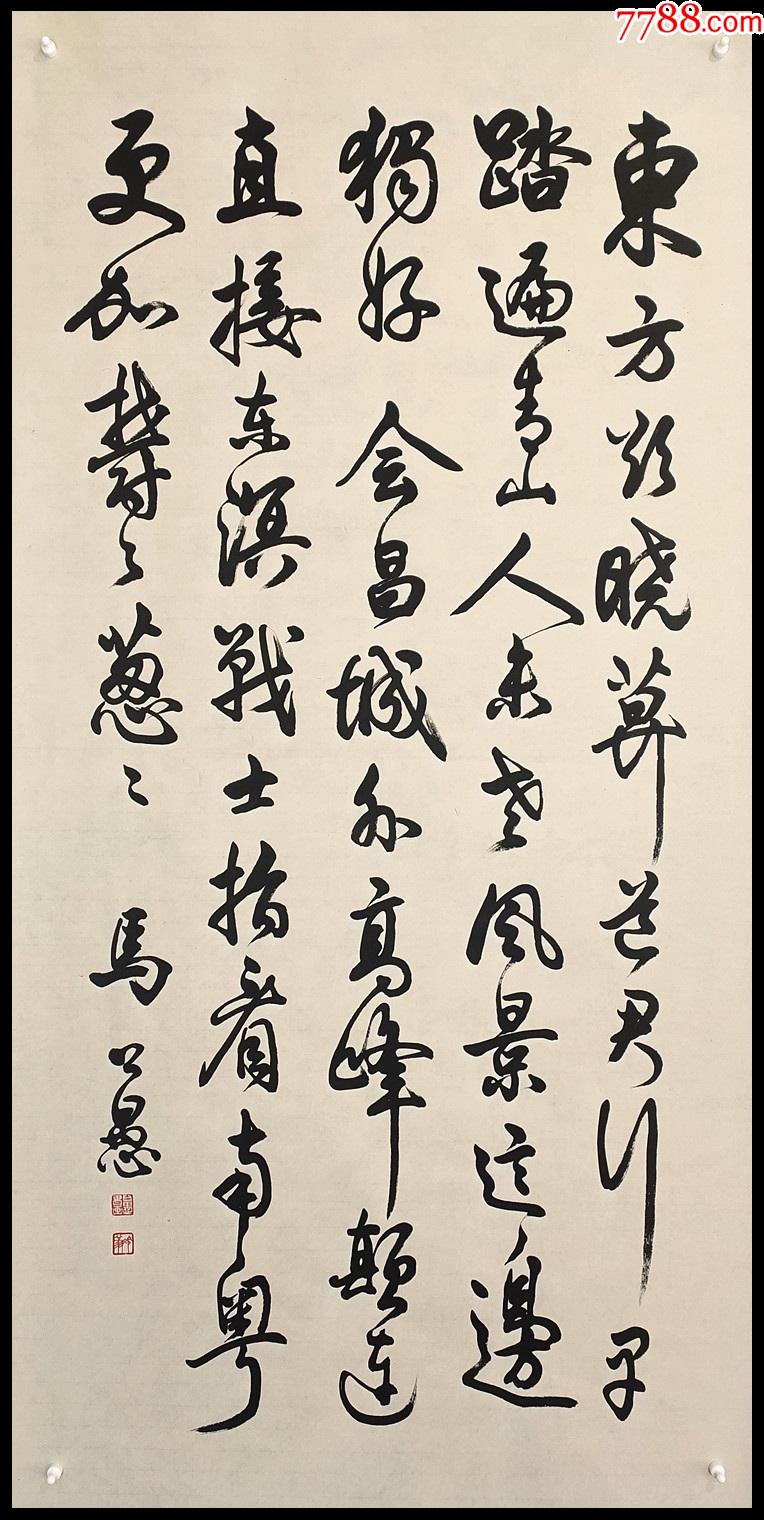 7788.com
東方欲晓莫道君行早
踏遍青山人未老风景這邊
獨好 会昌城外高峰顛连
直接东溟戰士指看南粤
更加欝々葱々 馬公愚